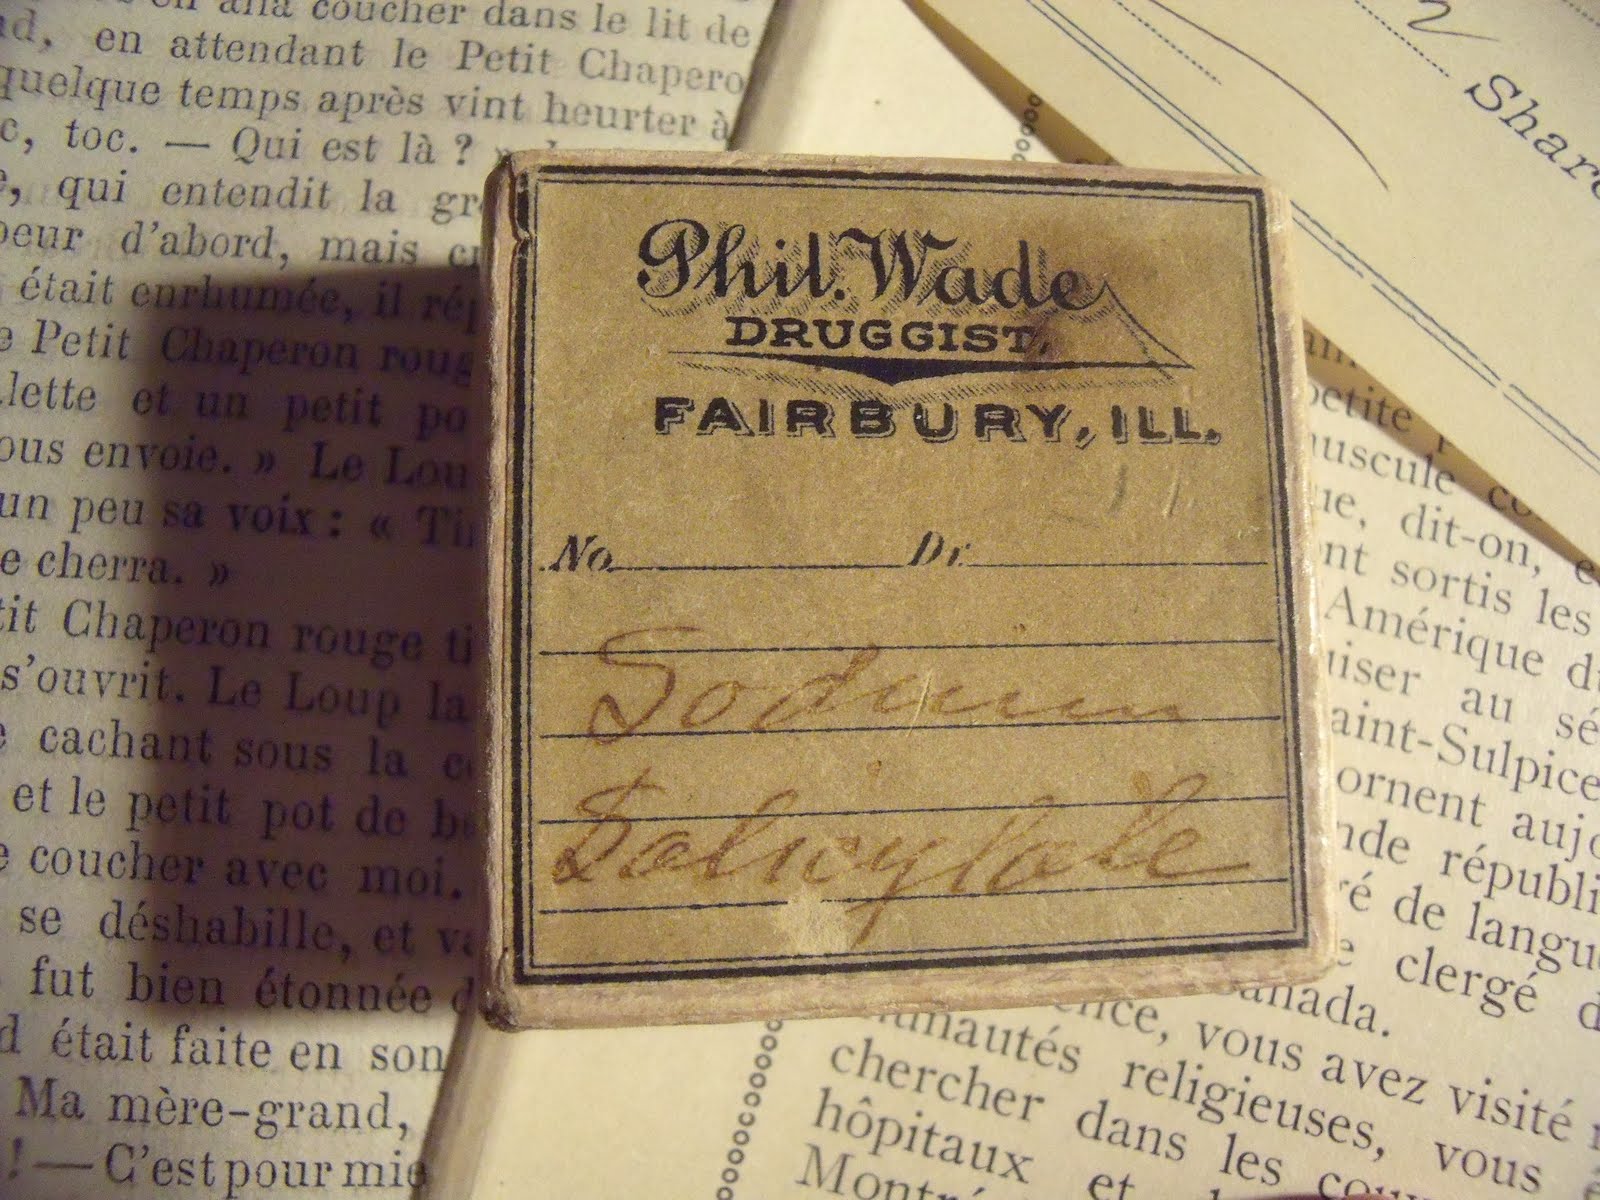 en alla coucher dans le lit de
en attendant le Petit Chapero
quelque temps après vint heurter à
toc. — Qui est là ? »
qui entendit la
d'abord, mais
était enrhumée, il
Petit Chaperon
et un petit
envoie. » Le
un peu sa voix : «
cherra. »
Chaperon rouge
s'ouvrit. Le Loup la
cachant sous la
et le petit pot de
coucher avec moi.
se déshabille, et
fut bien étonnée
était faite en son
Ma mère-grand,
! — C'est pour
Phil. Wade
DRUGGIST,
FAIRBURY, ILL.
No. Dr.
Sodium
Salicylate
Share
petite
dit-on,
sortis les
Amérique
au
aint-Sulpice
ornent
républi
de
clergé
Canada.
vous avez visité
religieuses, vous
chercher dans les
hôpitaux et